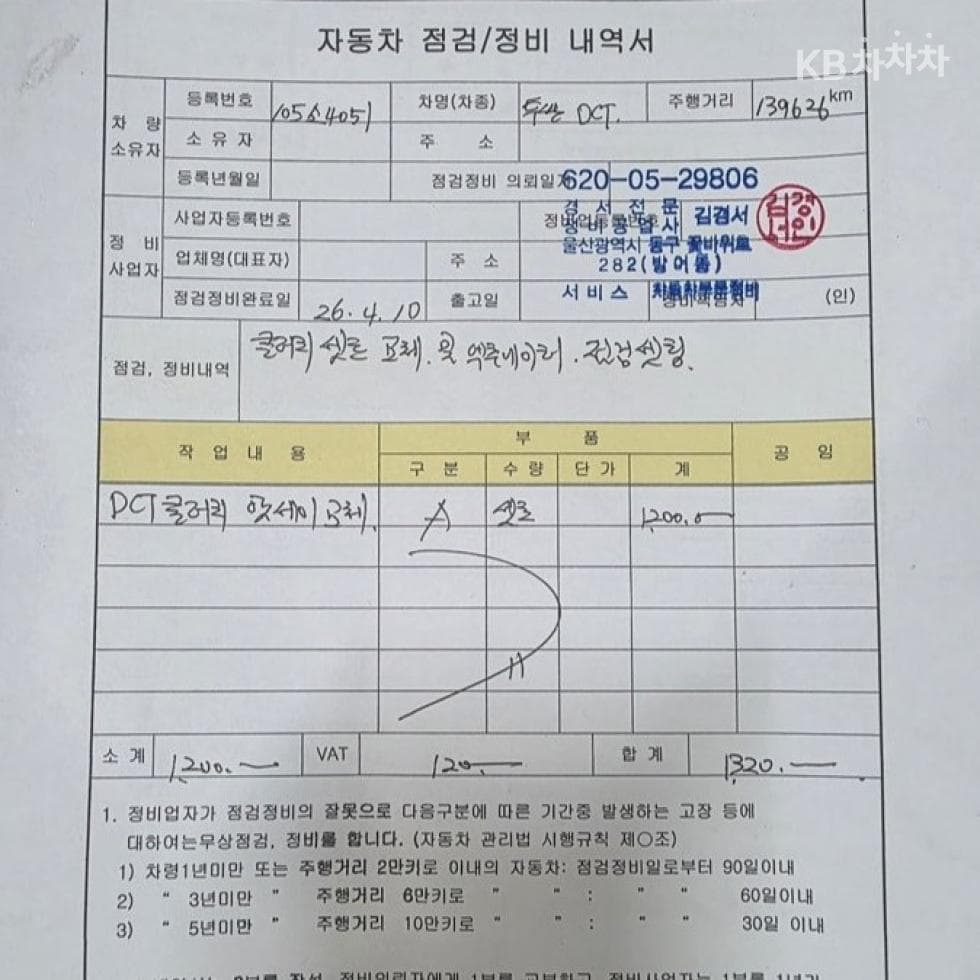 자동차 점검/정비 내역서
KB차차차
차 량 소유자
등록번호 105소4051 차명(차종) 투싼 DCT. 주행거리 139626 km
소 유 자 주 소
등록년월일 점검정비 의뢰일자 620-05-29806
정 비 사업자
사업자등록번호 정비업등록번호
경 서 전 문 김경서
정비공업사
업체명(대표자) 주 소
울산광역시 동구 꽃바위로
282(방어동)
점검정비완료일 26.4.10 출고일 서비스 자동차부분정비 (인)
점검, 정비내역 클러치 셋트 교체. 및 엑츄레이터. 점검셋팅.
작 업 내 용 부 품 공 임
구 분 수 량 단 가 계
DCT 클러치 앗세이 교체. A 셋트 1,200.0
〃
소 계 1,200. VAT 120. 합 계 1,320.
1. 정비업자가 점검정비의 잘못으로 다음구분에 따른 기간중 발생하는 고장 등에
대하여는무상점검, 정비를 합니다. (자동차 관리법 시행규칙 제○조)
1) 차령1년미만 또는 주행거리 2만키로 이내의 자동차: 점검정비일로부터 90일이내
2) " 3년미만 " 주행거리 6만키로 " " : " " 60일이내
3) " 5년미만 " 주행거리 10만키로 " " : " " 30일 이내